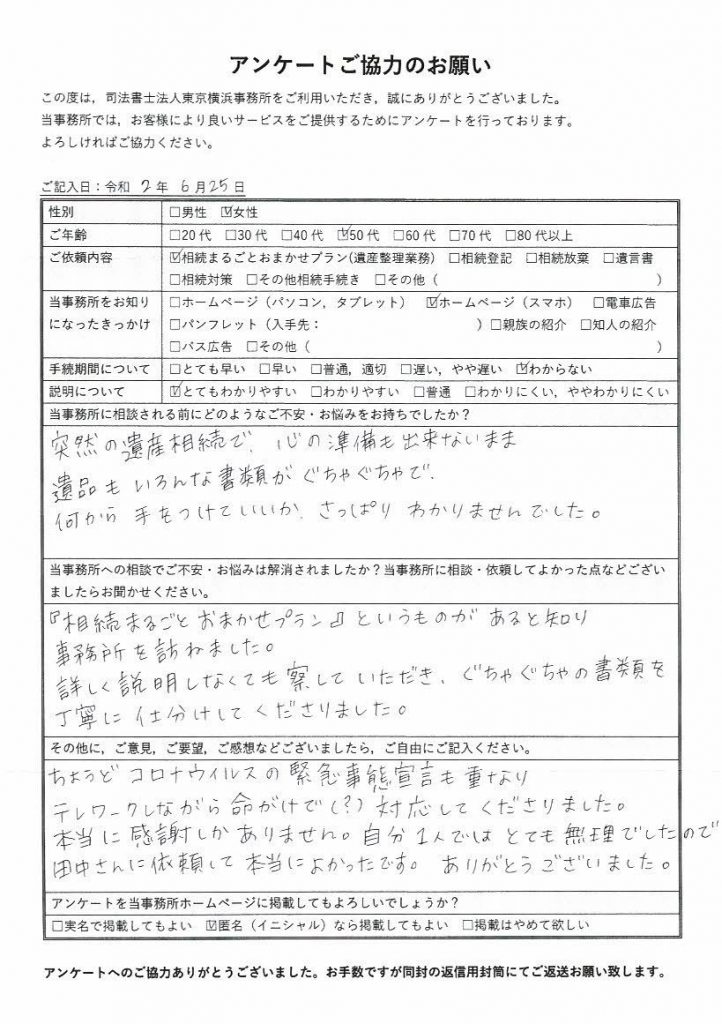 アンケートご協力のお願い
この度は，司法書士法人東京横浜事務所をご利用いただき，誠にありがとうございました。
当事務所では，お客様により良いサービスをご提供するためにアンケートを行っております。
よろしければご協力ください。
ご記入日：令和 2年 6月25日
性別 □男性 ☑女性
ご年齢 □20代 □30代 □40代 ☑50代 □60代 □70代 □80代以上
ご依頼内容 ☑相続まるごとおまかせプラン(遺産整理業務) □相続登記 □相続放棄 □遺言書
□相続対策 □その他相続手続き □その他（ ）
当事務所をお知り □ホームページ（パソコン，タブレット） ☑ホームページ（スマホ） □電車広告
になったきっかけ □パンフレット（入手先： ）□親族の紹介 □知人の紹介
□バス広告 □その他（ ）
手続期間について □とても早い □早い □普通，適切 □遅い，やや遅い ☑わからない
説明について ☑とてもわかりやすい □わかりやすい □普通 □わかりにくい，ややわかりにくい
当事務所に相談される前にどのようなご不安・お悩みをお持ちでしたか？
突然の遺産相続で、心の準備も出来ないまま
遺品もいろんな書類がぐちゃぐちゃで、
何から手をつけていいか、さっぱりわかりませんでした。
当事務所への相談でご不安・お悩みは解消されましたか？当事務所に相談・依頼してよかった点などござい
ましたらお聞かせください。
『相続まるごとおまかせプラン』というものがあると知り
事務所を訪ねました。
詳しく説明しなくても察していただき、ぐちゃぐちゃの書類を
丁寧に仕分けしてくださりました。
その他に，ご意見，ご要望，ご感想などございましたら，ご自由にご記入ください。
ちょうどコロナウイルスの緊急事態宣言も重なり
テレワークしながら命がけで(?)対応してくださりました。
本当に感謝しかありません。自分1人ではとても無理でしたので
田中さんに依頼して本当によかったです。ありがとうございました。
アンケートを当事務所ホームページに掲載してもよろしいでしょうか？
□実名で掲載してもよい ☑匿名（イニシャル）なら掲載してもよい □掲載はやめて欲しい
アンケートへのご協力ありがとうございました。お手数ですが同封の返信用封筒にてご返送お願い致します。